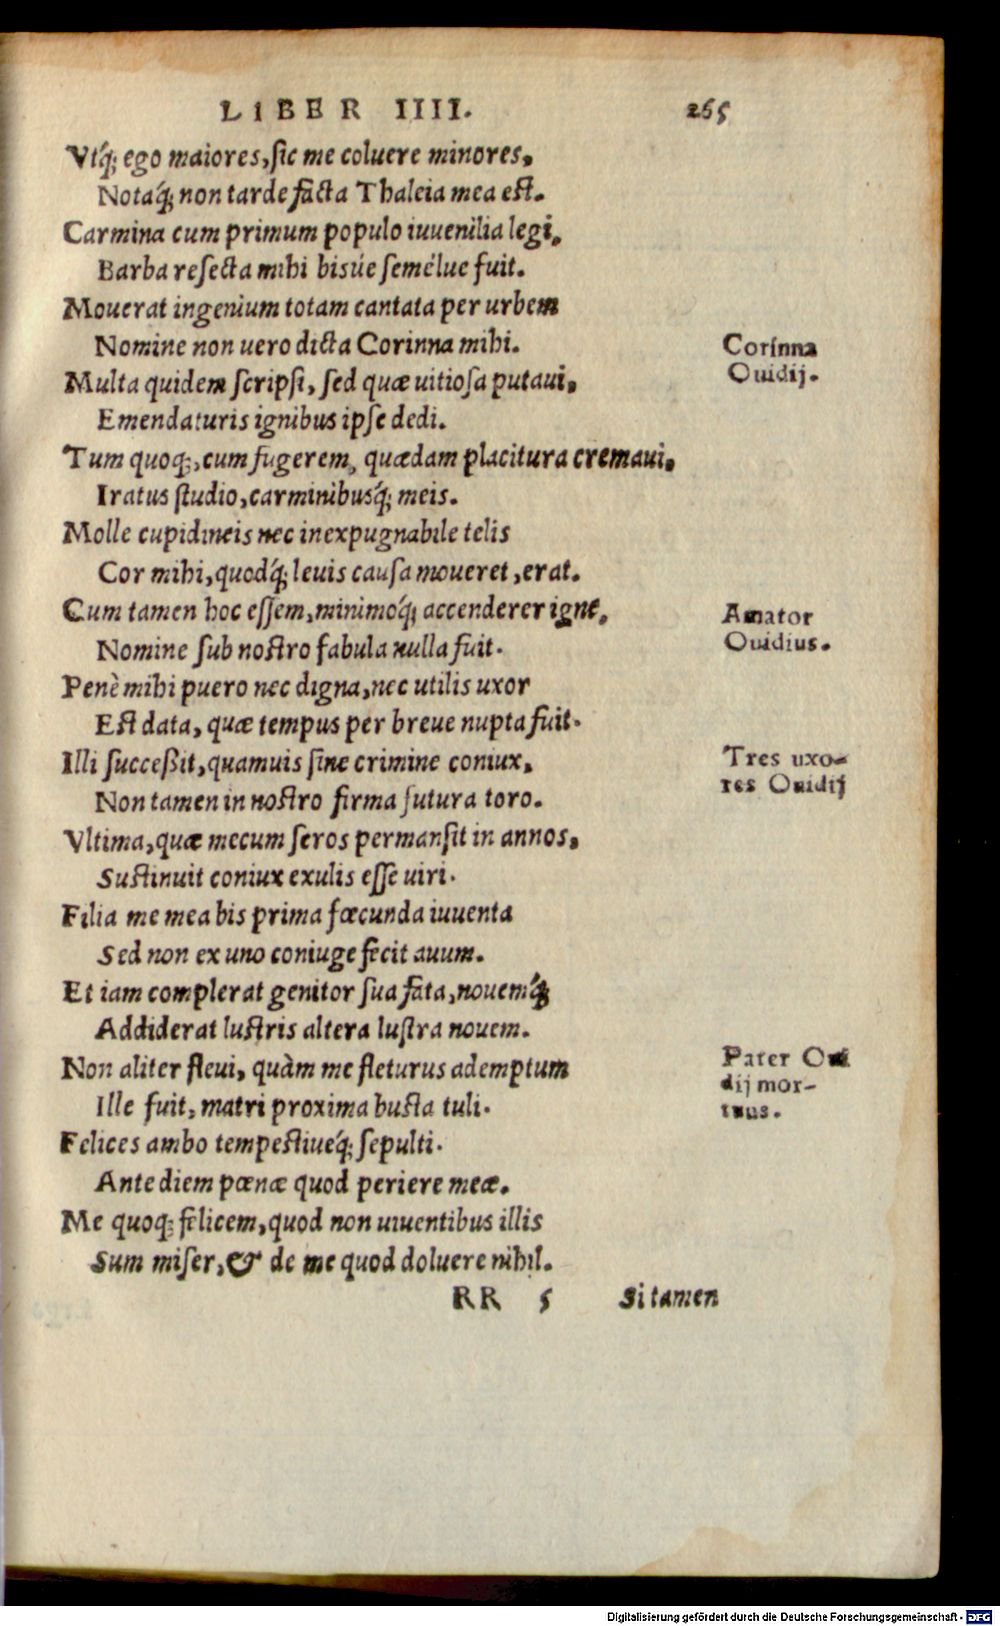 LIBER IIII. 265
Vtq́; ego maiores, sic me coluere minores,
Notaq́; non tarde facta Thaleia mea est.
Carmina cum primum populo iuuenilia legi,
Barba resecta mihi bisúe semélue fuit.
Mouerat ingenium totam cantata per urbem
Nomine non uero dicta Corinna mihi.
Corinna
Ouidij.
Multa quidem scripsi, sed quæ uitiosa putaui,
Emendaturis ignibus ipse dedi.
Tum quoq;, cum fugerem, quædam placitura cremaui,
Iratus studio, carminibusq́; meis.
Molle cupidineis nec inexpugnabile telis
Cor mihi, quodq́; leuis causa moueret, erat.
Cum tamen hoc essem, minimoq́; accenderer igne,
Nomine sub nostro fabula nulla fuit.
Amator
Ouidius.
Penè mihi puero nec digna, nec utilis uxor
Est data, quæ tempus per breue nupta fuit.
Illi succeßit, quamuis sine crimine coniux,
Non tamen in nostro firma futura toro.
Tres uxo-
res Ouidij
Vltima, quæ mecum seros permansit in annos,
Sustinuit coniux exulis esse uiri.
Filia me mea bis prima fœcunda iuuenta
Sed non ex uno coniuge fecit auum.
Et iam complerat genitor sua fata, nouemq́;
Addiderat lustris altera lustra nouem.
Non aliter fleui, quàm me fleturus ademptum
Ille fuit, matri proxima busta tuli.
Pater Oui
dij mor-
tuus.
Felices ambo tempestiueq́; sepulti.
Ante diem pœnæ quod periere meæ.
Me quoq; felicem, quod non uiuentibus illis
Sum miser, & de me quod doluere nihil.
RR 5 Si tamen
Digitalisierung gefördert durch die Deutsche Forschungsgemeinschaft - DFG